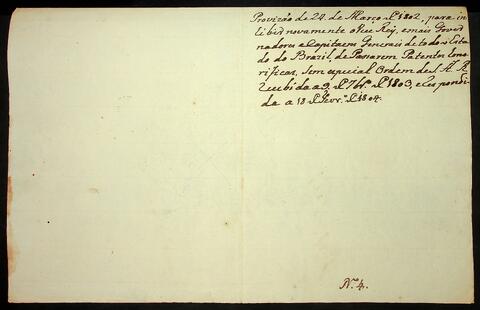 Provizão de 24. de Março de 1802, para in
hibir novamente o Vice Rey, e mais Gover
nadores e Capitaens Generais de todo o Esta
do do Brazil, de Passarem Patentes hono
rificas, sem especial Ordem de S. A. R.
recebida a 9. de 7br.º de 1803, e respondi
da a 18 de Fevr.º de 1804.
N.º 4.